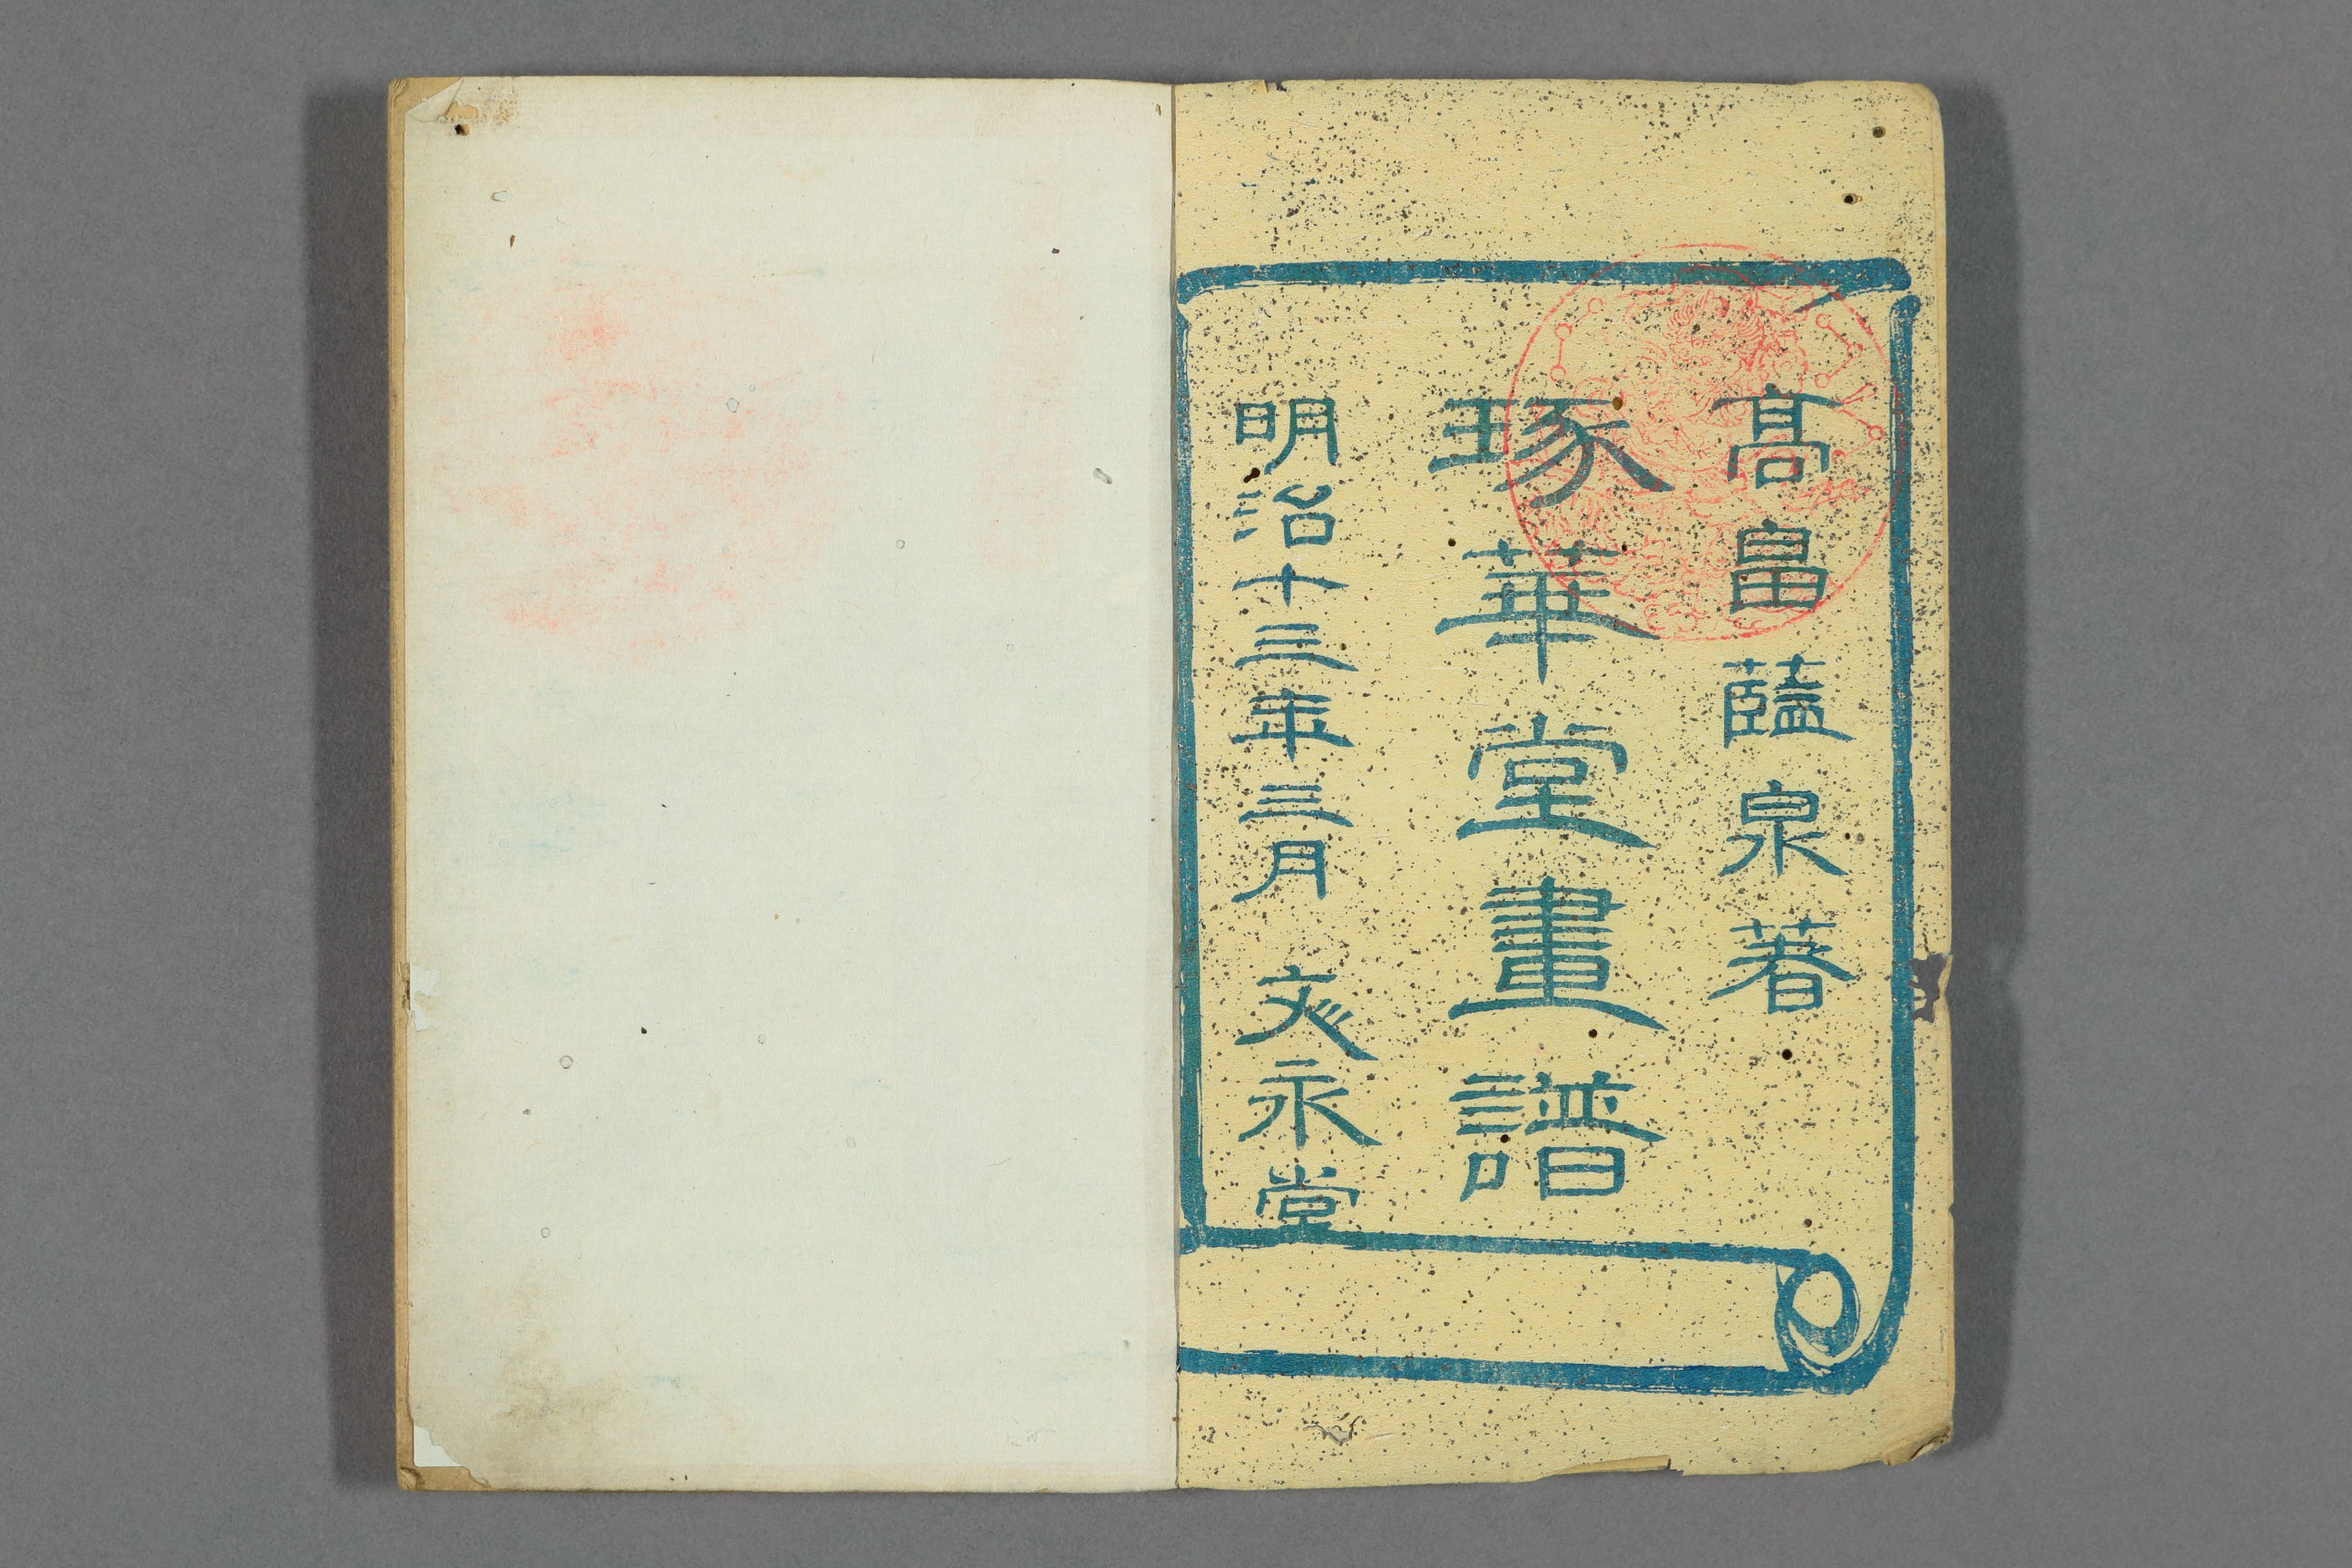 髙畠藍泉著
琢華堂畫譜
明治十三年三月 文永堂